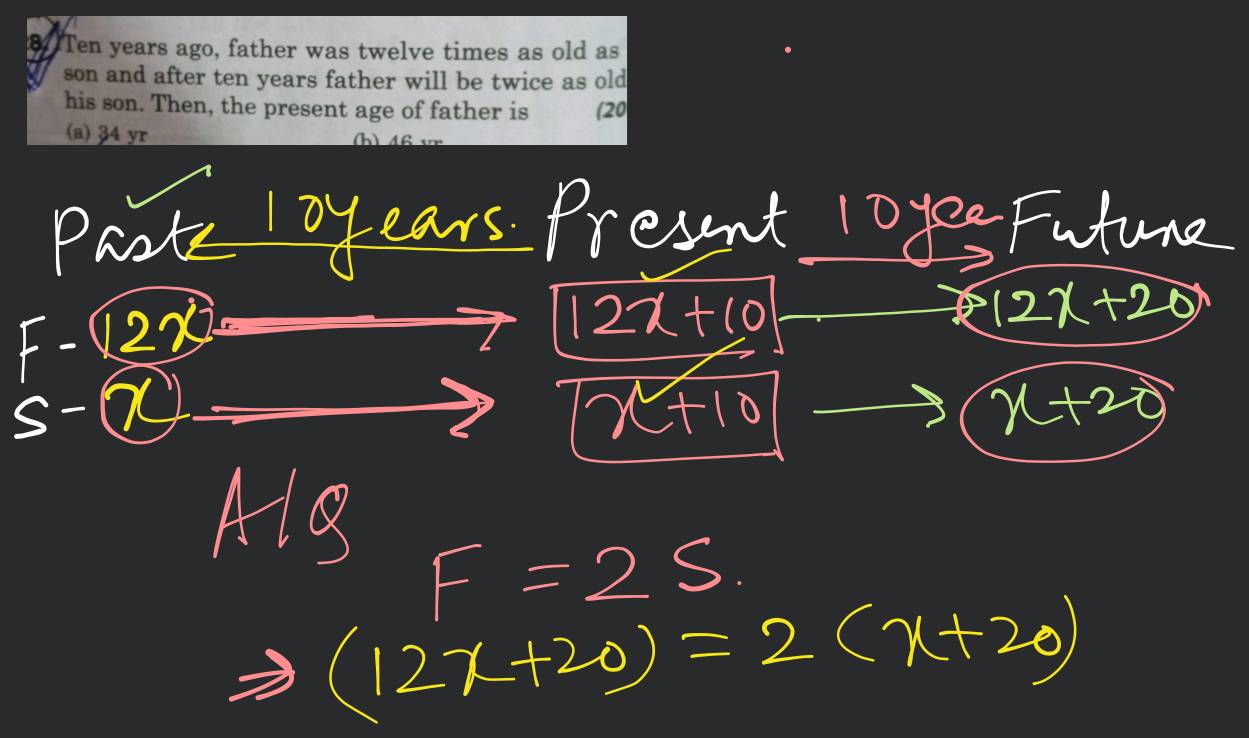 8. Ten years ago, father was twelve times as old as
son and after ten years father will be twice as old
his son. Then, the present age of father is (20
(a) 34 yr (b) 46 yr
Past 10years. Present 10yea Future
F- 12x 12x+10 12x+20
S- x x+10 x+20
A/Q
F = 2 S.
⇒ (12x+20) = 2 (x+20)